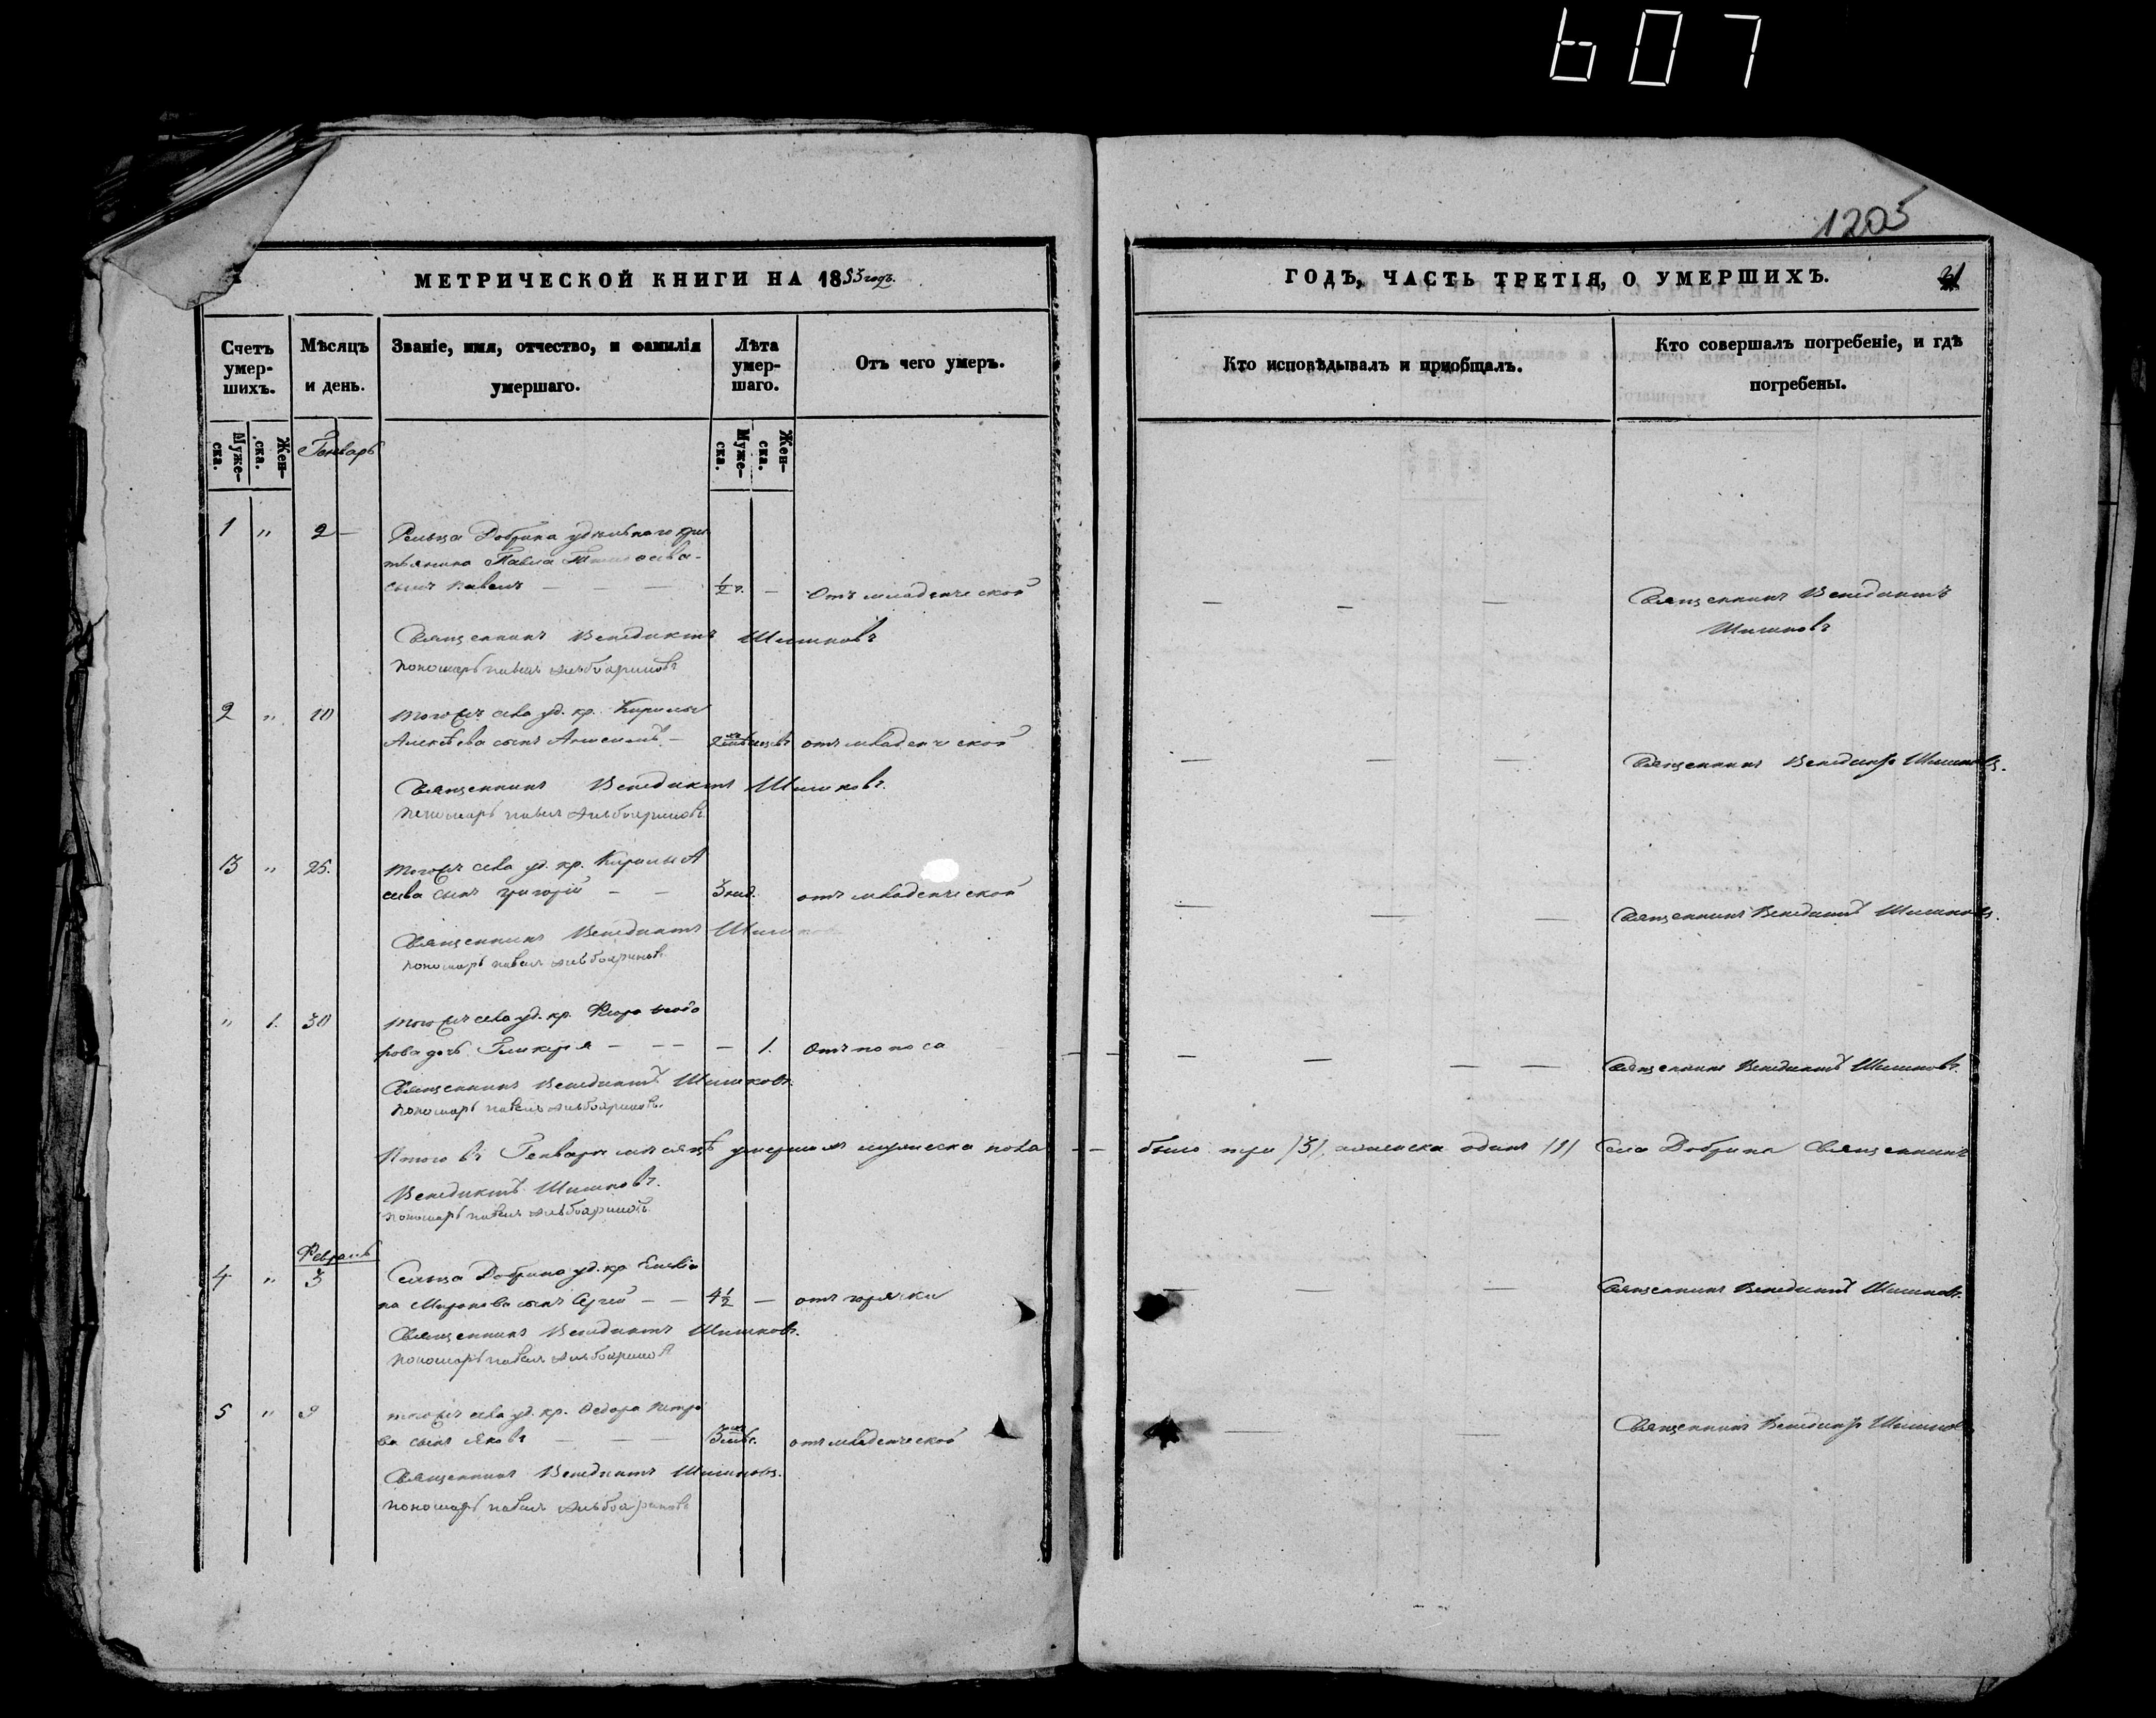 607
1205
МЕТРИЧЕСКОЙ КНИГИ НА 1853 годъ.
Счетъ умер-шихъ.
Мѣсяцъ и день.
Званіе, имя, отчество, и фамилія умершаго.
Лѣта умер-шаго.
Отъ чего умеръ.
Муже-ска.
Жен-ска.
Генварь
Муже-ска.
Жен-ска.
1 " 2 — Сельца Добрина удѣльнаго кре
стьянина Павла
сынъ Павелъ — — — 1/2 г. — Отъ младенческой
Священникъ Венедиктъ Шишковъ
пономарь павелъ
2 " 10 тогожъ села уд. кр. Кирилы
Алексѣева сынъ — отъ младенческой
Священникъ Венедиктъ Шишковъ.
пономарь павелъ
3 " 25. тогожъ села уд. кр. Кирилы А
сынъ григорій — — 3 нед. отъ младенческой
Священникъ Венедиктъ Шишковъ
пономарь павелъ
" 1. 30 тогожъ села уд. кр.
рова дочь Гликерія — — — — 1. Отъ поноса
Священникъ Венедиктъ Шишковъ.
пономарь павелъ
Итого въ Генварѣ мѣсяцѣ умершихъ мужеска пола
Венедиктъ Шишковъ.
пономарь павелъ
Февраль
4 " 3 Сельца Добрина уд. кр.
на Миронова сынъ Сергей — — 4 1/2 — отъ горячки
Священникъ Венедиктъ Шишковъ.
пономарь павелъ
5 " 9 тогожъ села уд. кр. Федора Петро
ва сынъ Яковъ — — — отъ младенческой
Священникъ Венедиктъ Шишковъ.
пономарь павелъ
ГОДЪ, ЧАСТЬ ТРЕТІЯ, О УМЕРШИХЪ.
Кто исповѣдывалъ и приобщалъ.
Кто совершалъ погребеніе, и гдѣ погребены.
— — — Священникъ Венедиктъ
Шишковъ
— — — Священникъ Венедиктъ Шишковъ.
— — — Священникъ Венедиктъ Шишковъ.
— — — — Священникъ Венедиктъ Шишковъ.
было три /3/, а женска одинъ /1/ Села Добрина Священникъ
— — — Священникъ Венедиктъ Шишковъ.
— — — Священникъ Венедиктъ Шишковъ